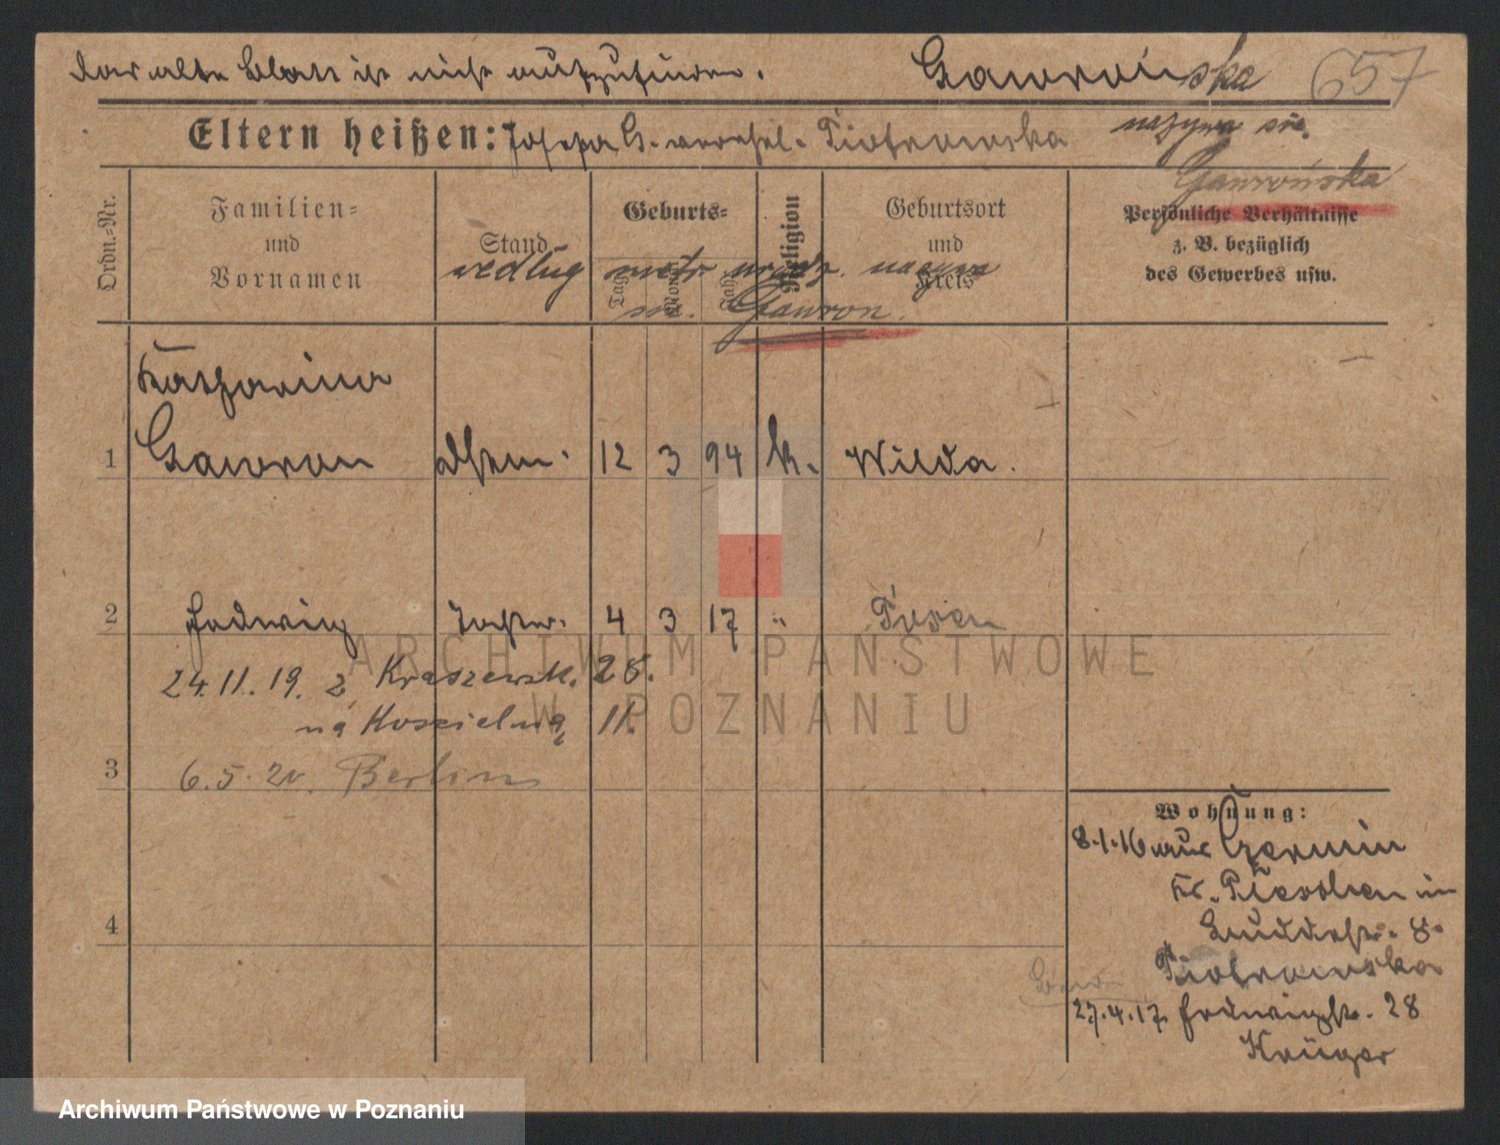 das alte Blatt ist nicht aufzufinden. Gawrońska 657
Eltern heißen: Josefa G. verehel. Piotrowska nazywa się
Gawrońska
Ordn.-Nr.
Familien=
und
Vornamen
Stand
Geburts=
Tag
Mon.
Jahr
Religion
Geburtsort
und
Kreis
Persönliche Verhältnisse
z. B. bezüglich
des Gewerbes usw.
według metr. urodz. nazywa
się. Gawron.
Katharina
1 Gawron 12 3 94 k. Wilda.
2 Hedwig Tochter. 4 3 17 " Posen
24.11.19. z Kraszewsk. 28.
na Kościelną 11.
3 6.5.20. Berlin
4
Wohnung:
8.1.16 aus Czermin
Kr. Pleschen in
8.
Piotrowska
27.4.17. Hedwigstr. 28
Krüger
ARCHIWUM PAŃSTWOWE
W POZNANIU
Archiwum Państwowe w Poznaniu